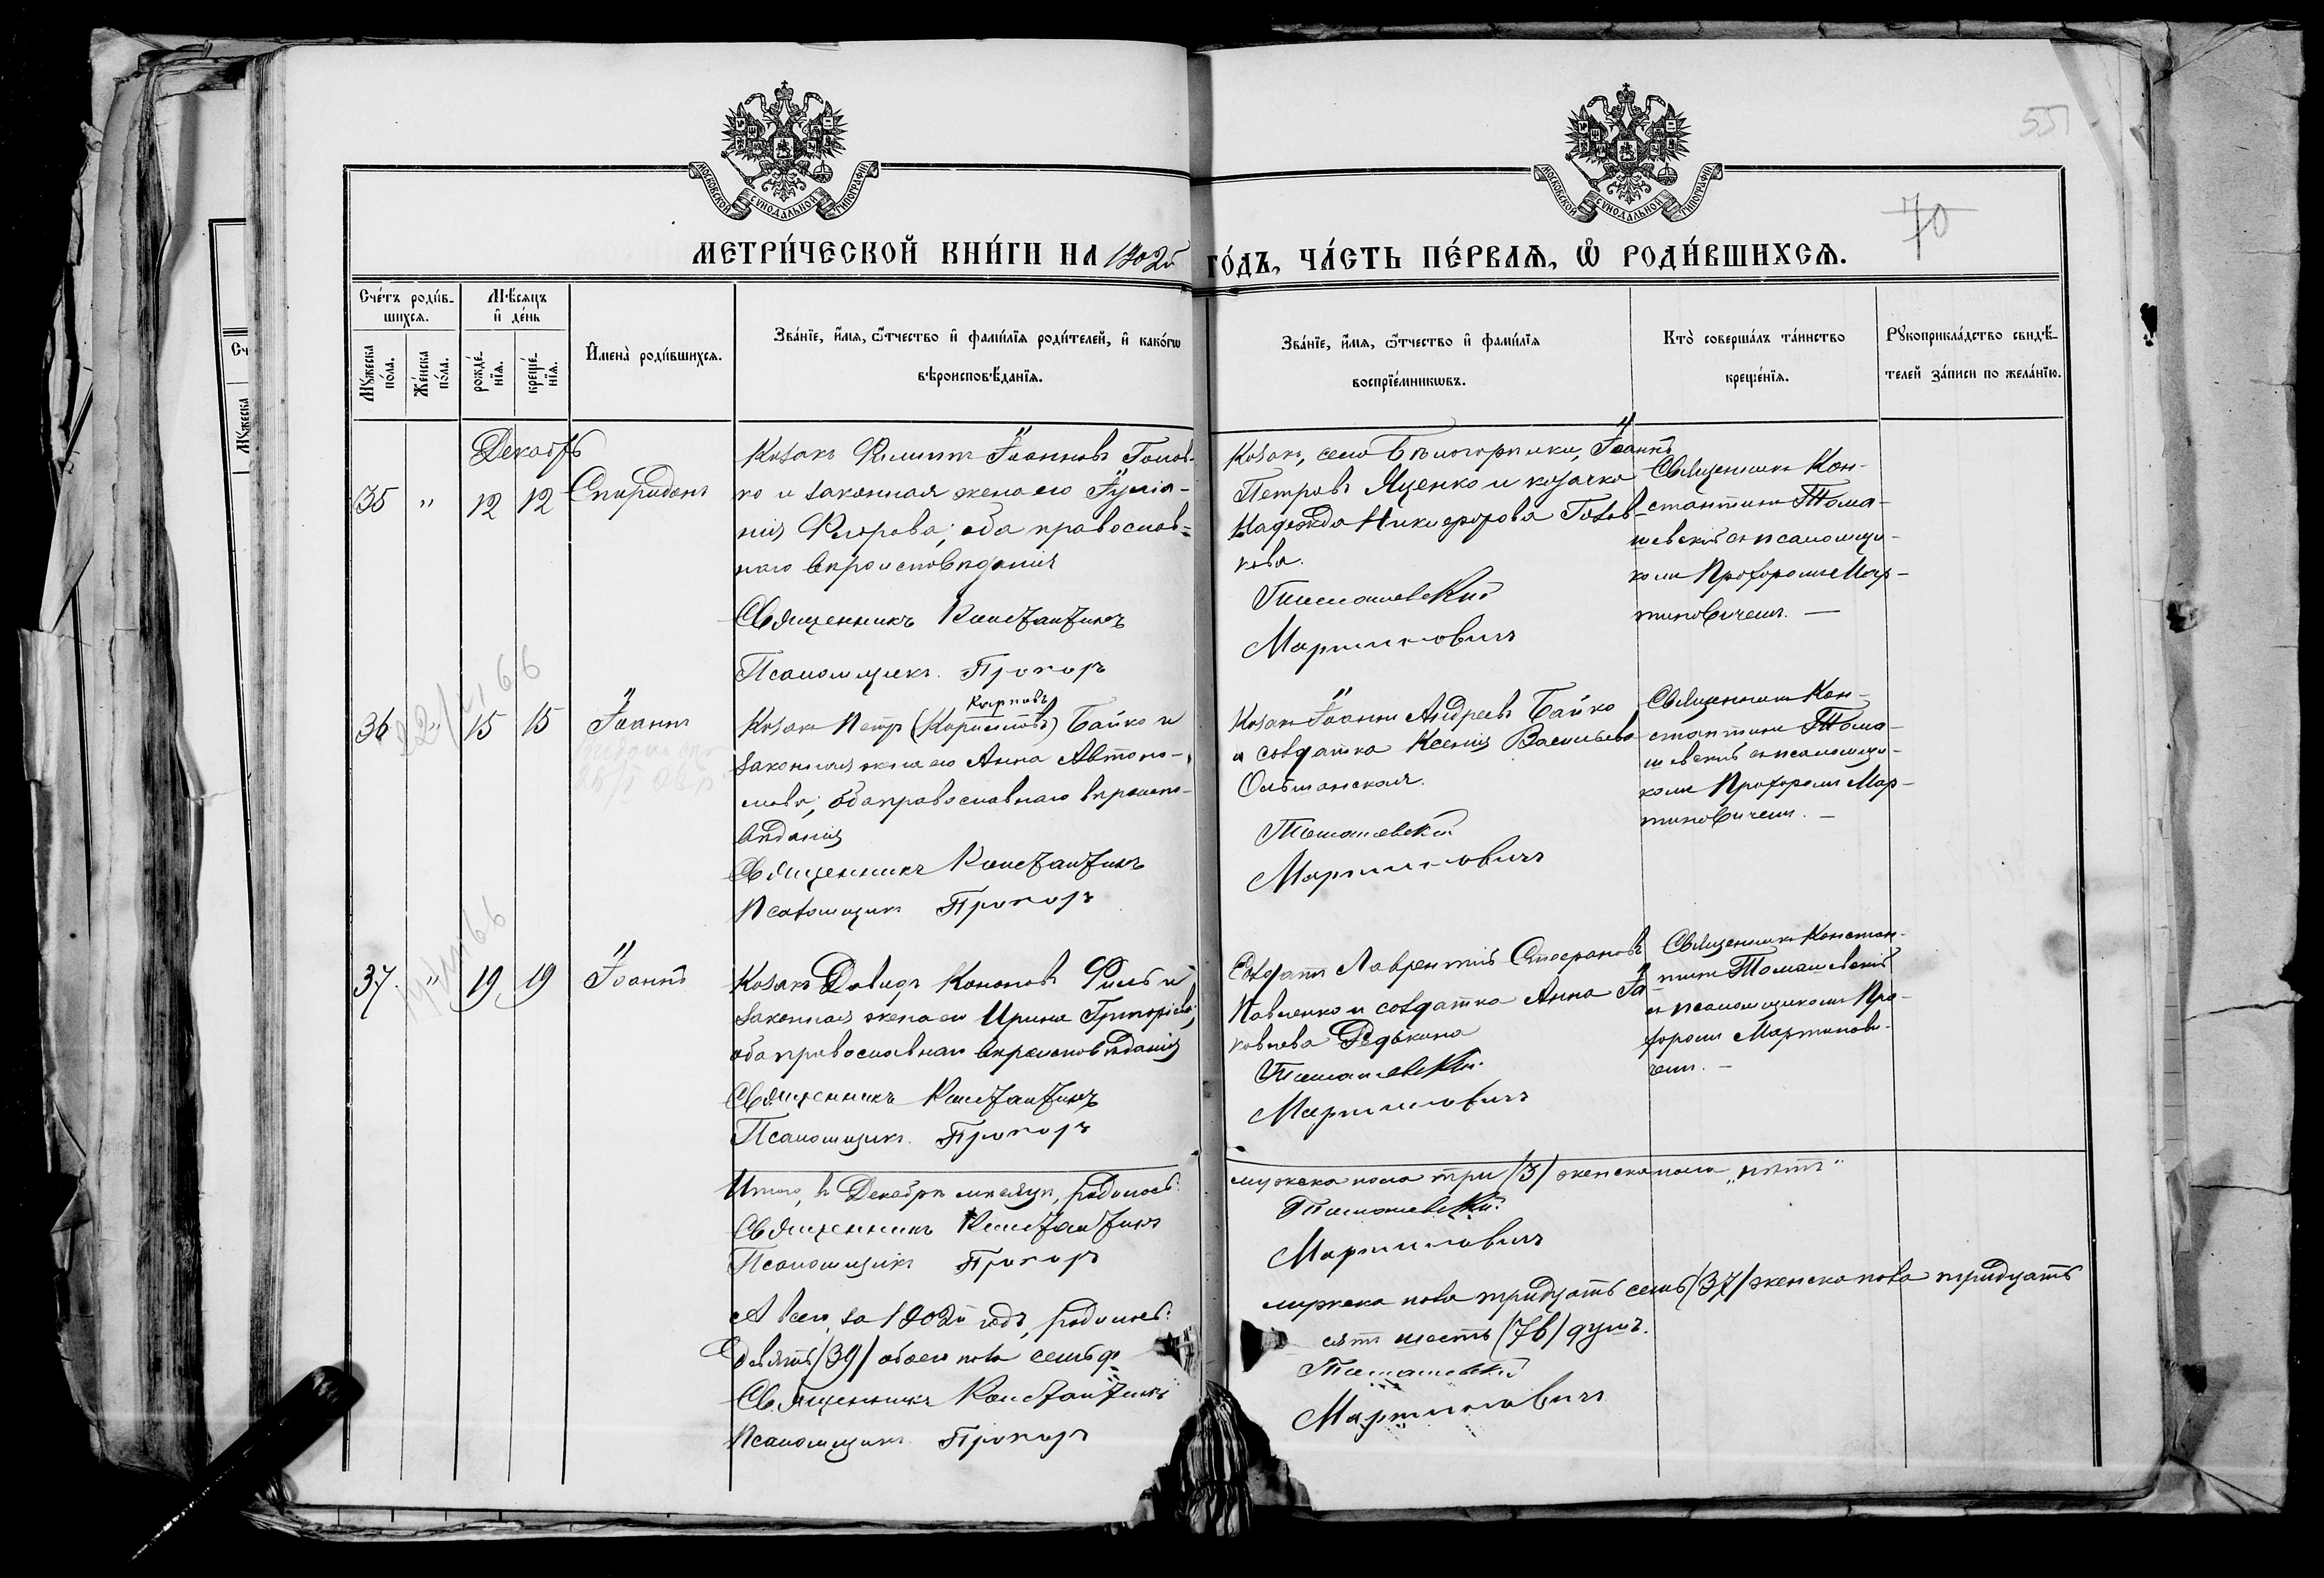 55
70
МОСКОВСКОЙ СѴНОДАЛЬНОЙ ТИПОГРАФІИ
МОСКОВСКОЙ СѴНОДАЛЬНОЙ ТИПОГРАФІИ
МЕТРИ́ЧЕСКОЙ КНИ́ГИ НА 1902й ГО́ДЪ, ЧА́СТЬ ПЕ́РВАЯ, Ѡ РОДИ́ВШИХСЯ.
Сче́тъ роди́в-
шихся.
Мꙋжеска
по́ла.
Же́нска
по́ла.
Мѣ́сяцъ
и҆ де́нь
рожде́-
нїя.
креще́-
нїя.
И҆мена̀ роди́вшихся.
Зва́нїе, и҆́мя, ѻ҆́тчество и҆ фами́лїя роди́телей, и҆ како́гѡ
вѣроисповѣ́данїя.
Зва́нїе, и҆́мя, ѻ҆́тчество и҆ фами́лїя
воспрїе́мникѡвъ.
Кто̀ соверша́лъ та́инство
креще́нїя.
Рꙋкоприкла́дство свидѣ́-
телей за́писи по жела́нїю.
Декабрь
35 " 12 12 Спиридонъ
Козакъ Филиппъ Іоанновъ Голов-
ко и законная жена его Іуліа-
нія Флорова; оба православ-
наго вѣроисповѣданія
Священникъ Константинъ
Псаломщикъ Прохоръ
Козакъ, села Бѣлогорилки, Іоаннъ
Петровъ Яценко и козачка
Надежда Никифорова Голов-
кова.
Томашевскій
Мартиновичъ
Священникъ Кон-
стантинъ Тома-
шевскій съ псаломщи-
комъ Прохоромъ Мар-
тиновичемъ. —
36 " 15 15 Іоаннъ
Карповъ
Козакъ Петръ (Карпиловъ) Байко и
законная жена его Анна Автоно-
мова; оба православнаго вѣроиспо-
вѣданія
Священникъ Константинъ
Псаломщикъ Прохоръ
Козакъ Іоаннъ Андреевъ Байко
и солдатка Ксенія Васильева
Ольшанская.
Томашевскій
Мартиновичъ
Священникъ Кон-
стантинъ Тома-
шевскій съ псаломщи-
комъ Прохоромъ Мар-
тиновичемъ. —
37. " 19 19 Іоаннъ
Козакъ Давидъ Кононовъ Филь и
законная жена его Ирина Григорьева;
оба православнаго вѣроисповѣданія
Священникъ Константинъ
Псаломщикъ Прохоръ
Солдатъ Лаврентій Стефановъ
Павленко и солдатка Анна Іа-
ковлева Редькина
Томашевскій
Мартиновичъ
Священникъ Констан-
тинъ Томашевскій
съ псаломщикомъ Про-
хоромъ Мартинови-
чемъ. —
Итого, въ Декабрѣ мѣсяцѣ, родилось: мужеска пола три /3/ женска пола „нѣтъ"
Священникъ Константинъ Томашевскій
Псаломщикъ Прохоръ Мартиновичъ
А всего, за 1902й годъ, родилось: мужеска пола тридцать семь /37/ женска пола тридцать
девять /39/ обоего пола семьде сятъ шесть /76/ душъ.
Священникъ Константинъ Томашевскій
Псаломщикъ Прохоръ Мартиновичъ